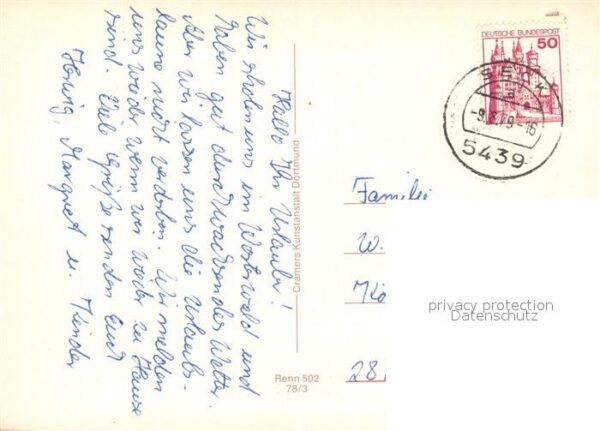 Hallo Ihr Urlauber!
Wir erholen uns im Westerwald und
haben gut durchwachsenes Wetter.
Aber wir lassen uns die Urlaubs-
laune nicht verderben. Wir melden
uns wieder wenn wir wieder zu Hause
sind. Viele Grüße senden Euch
Margret u. Kinder
Cramers Kunstanstalt Dortmund
Renn 502
78/3
DEUTSCHE BUNDESPOST
50
SECK
a
5439
Familie
W.
28
privacy protection
Datenschutz